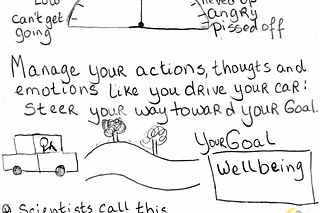 Low
can't get
going
revved up
angry
pissed off
Manage your actions, thougts and
emotions like you drive your car:
Steer your way toward your Goal.
Your Goal
Wellbeing
Scientists call this